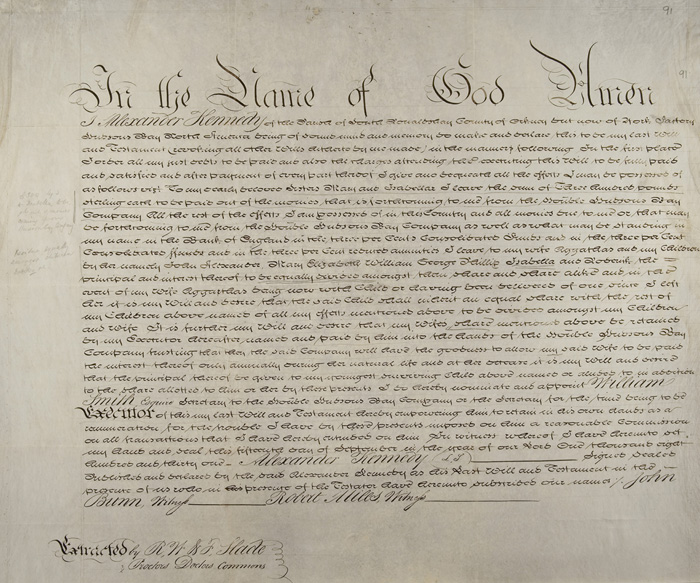 91
91
In the Name of God Amen
I Alexander Kennedy of the Parish of South Ronaldshay County of Orkney but now of York Factory
Hudsons Bay North America being of sound mind and memory do make and declare this to be my last Will
and Testament (revoking all other Wills hitherto by me made) in the manner following In the first place
I order all my just debts to be paid and also the charges attending the executing this Will to be fully paid
and satisfied and after payment of every part thereof I give and bequeath all the effects I may be possessed of
as follows viz. To my dearly beloved Sisters Mary and Isabellar I leave the sum of Three Hundred pounds
sterling each to be paid out of the monies that is forthcoming to me from the Honble Hudsons Bay
Company All the rest of the effects I am possessed of in this Country and all monies due to me or that may
be forthcoming to me from the Honble Hudsons Bay Company as well as what may be standing in
my name in the Bank of England in the three per Cents Consolidated Funds and in the three per Cent
Consolidated Funds and in the three per Cent reduced annuities I leave to my Wife Aggathas and my Children
by her namely John Alexander Mary Elizabeth William George Phillip Isabella and Roderick the
principal and interest thereof to be equally divided amongst them share and share alike and in the
event of my Wife Aggathas being now with Child or having been delivered of one since I left
her it is my Will and desire that the said Child shall inherit an equal share with the rest of
my Children above named of all my effects mentioned above to be divided amongst my Children
and Wife It is further my Will and desire that my Wifes share mentioned above be retained
by my Executor hereafter named and paid by him into the hands of the Honble Hudsons Bay
Company trusting that they the said Company will have the goodness to allow my said Wife to be paid
the interest thereof only annually during her natural life and at her decease it is my Will and desire
that the principal thereof be given to my youngest surviving Child above named or alluded to in addition
to the share allotted to him or her by these presents I do hereby nominate and appoint William
Smith Esquire Secretary to the Honble Hudsons Bay Company or the Secretary for the time being to be
Executor of this my last Will and Testament hereby empowering him to retain in his own hands as a
remuneration for the trouble I have by these presents imposed on him a reasonable Commission
on all transactions that I have hereby entailed on him In witness whereof I have hereunto set
my hand and seal this fifteenth day of September in the year of our Lord One thousand eight
hundred and thirty one Alexander Kennedy (LS) Signed Sealed
Published and declared by the said Alexander Kennedy as his Last Will and Testament in the
presence of us who in his presence of the Testator have hereunto subscribed our names John
Bunn, Witness Robert Miles, Witness
Extracted by R. W. & F. Slade
Proctors Doctors Commons